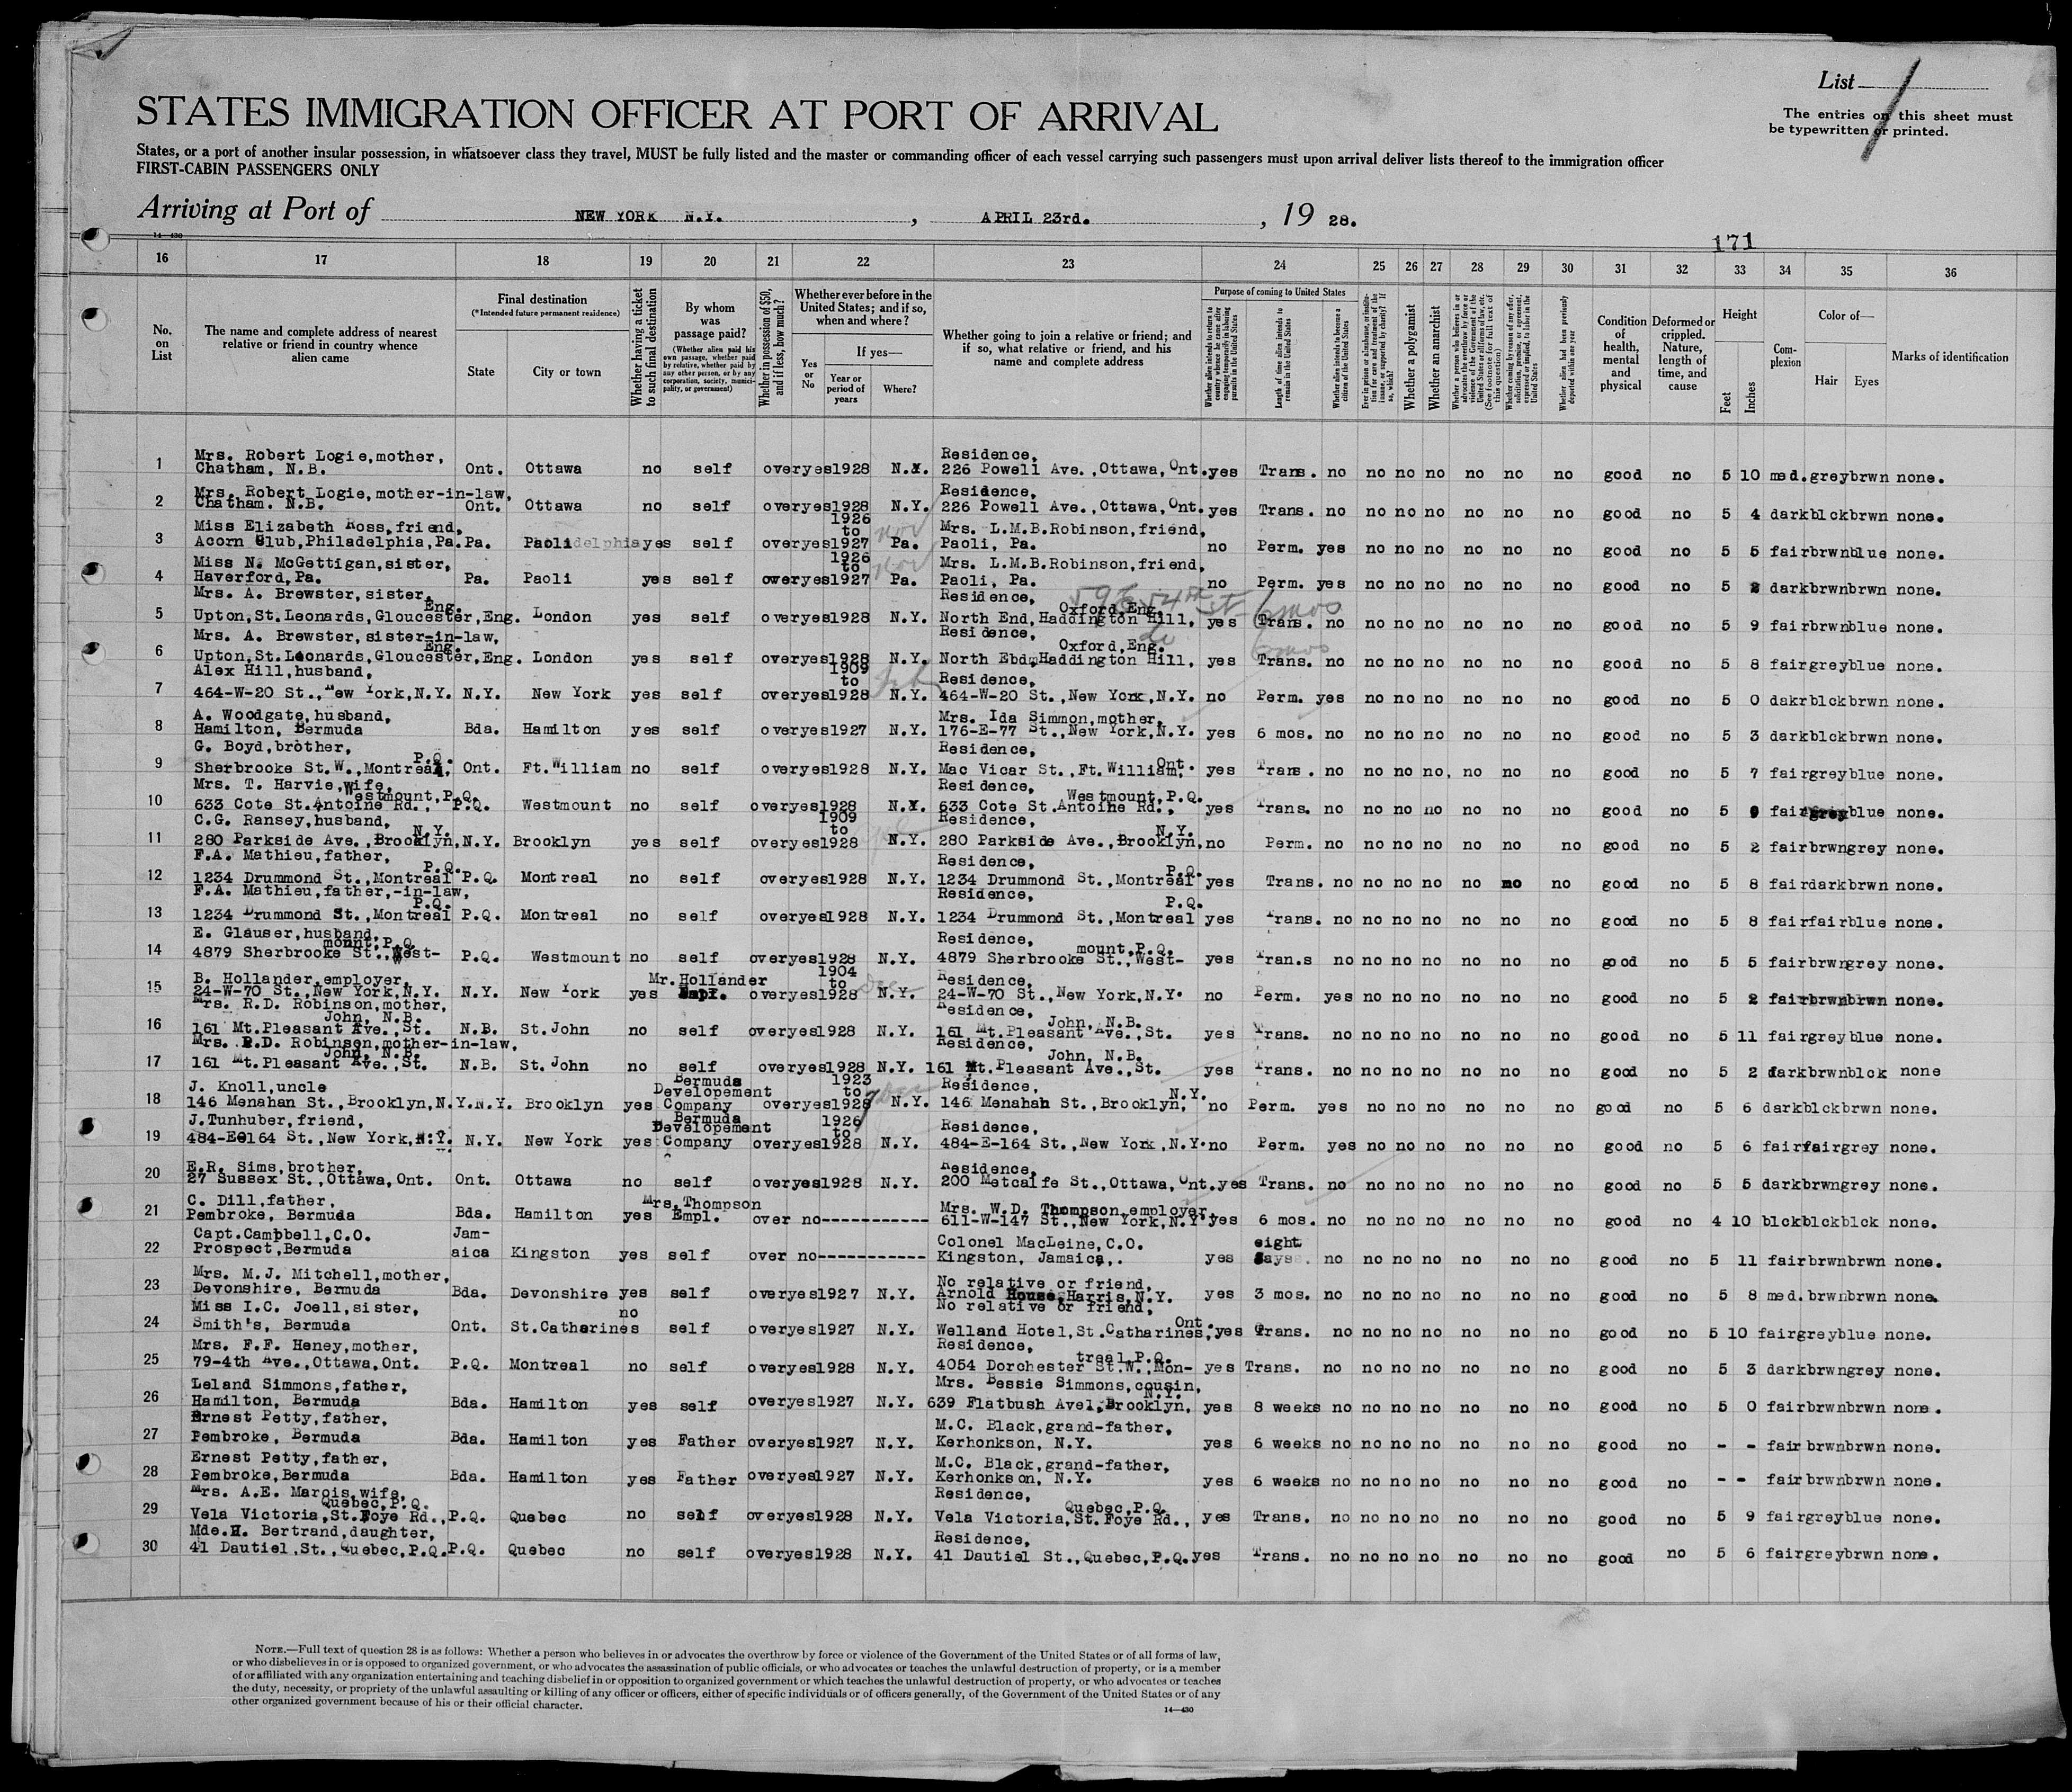 List 1
The entries on this sheet must
be typewritten or printed.
STATES IMMIGRATION OFFICER AT PORT OF ARRIVAL
States, or a port of another insular possession, in whatsoever class they travel, MUST be fully listed and the master or commanding officer of each vessel carrying such passengers must upon arrival deliver lists thereof to the immigration officer
FIRST-CABIN PASSENGERS ONLY
Arriving at Port of NEW YORK N.Y. , APRIL 23rd. , 19 28.
14—430
171
16 17 18 19 20 21 22 23 24 25 26 27 28 29 30 31 32 33 34 35 36
No. on List
The name and complete address of nearest relative or friend in country whence alien came
Final destination
(*Intended future permanent residence)
State
City or town
Whether having a ticket to such final destination
By whom was passage paid?
(Whether alien paid his own passage, whether paid by relative, whether paid by any other person, or by any corporation, society, municipality, or government)
Whether in possession of $50, and if less, how much?
Whether ever before in the United States; and if so, when and where?
Yes or No
If yes—
Year or period of years
Where?
Whether going to join a relative or friend; and if so, what relative or friend, and his name and complete address
Purpose of coming to United States
Whether alien intends to return to country whence he came after engaging temporarily in laboring pursuits in the United States
Length of time alien intends to remain in the United States
Whether alien intends to become a citizen of the United States
Ever in prison or almshouse, or institution for care and treatment of the insane, or supported by charity? If so, which?
Whether a polygamist
Whether an anarchist
Whether a person who believes in or advocates the overthrow by force or violence of the Government of the United States or all forms of law, etc. (See footnote for full text of this question)
Whether coming by reason of any offer, solicitation, promise, or agreement, expressed or implied, to labor in the United States
Whether alien had been previously deported within one year
Condition of health, mental and physical
Deformed or crippled. Nature, length of time, and cause
Height
Feet
Inches
Complexion
Color of—
Hair
Eyes
Marks of identification
1 Mrs. Robert Logie,mother, Chatham, N.B. Ont. Ottawa no self over yes 1928 N.Y. Residence, 226 Powell Ave.,Ottawa,Ont. yes Trans. no no no no no no no good no 5 10 med. grey brwn none.
2 Mrs. Robert Logie,mother-in-law, Chatham. N.B. Ont. Ottawa no self over yes 1928 N.Y. Residence, 226 Powell Ave.,Ottawa,Ont. yes Trans. no no no no no no no good no 5 4 dark blck brwn none.
3 Miss Elizabeth Ross,friend, Acorn Club,Philadelphia,Pa. Pa. Paoli yes self over yes 1926 to 1927 Pa. Mrs. L.M.B.Robinson,friend, Paoli, Pa. no Perm. yes no no no no no no good no 5 5 fair brwn blue none.
4 Miss N. McGettigan,sister, Haverford,Pa. Pa. Paoli yes self over yes 1926 to 1927 Pa. Mrs. L.M.B.Robinson,friend, Paoli, Pa. no Perm. yes no no no no no no good no 5 2 dark brwn brwn none.
5 Mrs. A. Brewster, sister, Upton,St.Leonards,Gloucester,Eng. Eng. London yes self over yes 1928 N.Y. Residence, North End,Haddington Hill, Oxford,Eng. yes Trans. 6 mos no no no no no no no good no 5 9 fair brwn blue none.
6 Mrs. A. Brewster,sister-in-law, Upton,St.Leonards,Gloucester,Eng. Eng. London yes self over yes 1928 N.Y. Residence, North Ebd,Haddington Hill, Oxford,Eng. do yes Trans. 6 mos no no no no no no no good no 5 8 fair grey blue none.
7 Alex Hill,husband, 464-W-20 St.,New York,N.Y. N.Y. New York yes self over yes 1909 to 1928 N.Y. Residence, 464-W-20 St.,New York,N.Y. no Perm. yes no no no no no no good no 5 0 dakr blck brwn none.
8 A. Woodgate,husband, Hamilton, Bermuda Bda. Hamilton yes self over yes 1927 N.Y. Mrs. Ida Simmon,mother, 176-E-77 St.,New York,N.Y. yes 6 mos. no no no no no no no good no 5 3 dark blck brwn none.
9 G. Boyd,brother, Sherbrooke St.W.,Montreal, P.Q. Ont. Ft.William no self over yes 1928 N.Y. Residence, Mac Vicar St.,Ft.William, Ont. yes Trans. no no no no, no no no good no 5 7 fair grey blue none.
10 Mrs. T. Harvie,wife, 633 Cote St.Antoine Rd., Westmount,P.Q. P.Q. Westmount no self over yes 1928 N.Y. Residence, 633 Cote St.Antoine Rd., Westmount,P.Q. yes Trans. no no no no no no no good no 5 9 fair grey blue none.
11 C.G. Ransey,husband, 280 Parkside Ave.,Brooklyn, N.Y. N.Y. Brooklyn yes self over yes 1909 to 1928 N.Y. Residence, 280 Parkside Ave.,Brooklyn, N.Y. no Perm. no no no no no no no good no 5 2 fair brwn grey none.
12 F.A. Mathieu,father, 1234 Drummond St.,Montreal P.Q. P.Q. Montreal no self over yes 1928 N.Y. Residence, 1234 Drummond St.,Montreal P.Q. yes Trans. no no no no no no no good no 5 8 fair dark brwn none.
13 F.A. Mathieu,father,-in-law, 1234 Drummond St.,Montreal P.Q. P.Q. Montreal no self over yes 1928 N.Y. Residence, 1234 Drummond St.,Montreal P.Q. yes Trans. no no no no no no no good no 5 8 fair fair blue none.
14 E. Glauser,husband, 4879 Sherbrooke St.,West- mount,P.Q. P.Q. Westmount no self over yes 1928 N.Y. Residence, 4879 Sherbrooke St.,West- mount,P.Q. yes Tran.s no no no no no no no good no 5 5 fair brwn grey none.
15 B. Hollander,employer, 24-W-70 St.,New York,N.Y. N.Y. New York yes Mr.Hollander Empl. over yes 1904 to 1928 N.Y. Residence, 24-W-70 St.,New York,N.Y. no Perm. yes no no no no no no good no 5 2 fair brwn brwn none.
16 Mrs. R.D. Robinson,mother, 161 Mt.Pleasant Ave.,St. John, N.B. N.B. St.John no self over yes 1928 N.Y. Residence, 161 Mt.Pleasant Ave.,St. John, N.B. yes Trans. no no no no no no no good no 5 11 fair grey blue none.
17 Mrs. R.D. Robinson,mother-in-law, 161 Mt.Pleasant Ave.,St. John, N.B. N.B. St.John no self over yes 1928 N.Y. Residence, 161 Mt.Pleasant Ave.,St. John, N.B. yes Trans. no no no no no no no good no 5 2 dark brwn blck none
18 J. Knoll,uncle 146 Menahan St.,Brooklyn,N.Y. N.Y. Brooklyn yes Bermuda Developement Company over yes 1923 to 1928 N.Y. Residence, 146 Menahan St.,Brooklyn, N.Y. no Perm. yes no no no no no no good no 5 6 dark blck brwn none.
19 J.Tunhuber,friend, 484-E-164 St.,New York,N.Y. N.Y. New York yes Bermuda Developement Company over yes 1926 to 1928 N.Y. Residence, 484-E-164 St.,New York,N.Y. no Perm. yes no no no no no no good no 5 6 fair fair grey none.
20 E.R. Sims,brother, 27 Sussex St.,Ottawa,Ont. Ont. Ottawa no self over yes 1928 N.Y. Residence, 200 Metcalfe St.,Ottawa,Ont. yes Trans. no no no no no no no good no 5 5 dark brwn grey none.
21 C. Dill,father, Pembroke, Bermuda Bda. Hamilton yes Mrs.Thompson Empl. over no----------- Mrs. W.D. Thompson,employer, 611-W-147 St.,New York,N.Y. yes 6 mos. no no no no no no no good no 4 10 blck blck blck none.
22 Capt.Campbell,C.O. Prospect,Bermuda Jam- aica Kingston yes self over no----------- Colonel MacLeine,C.O. Kingston, Jamaica,. yes eight days no no no no no no no good no 5 11 fair brwn brwn none.
23 Mrs. M.J. Mitchell,mother, Devonshire, Bermuda Bda. Devonshire yes self over yes 1927 N.Y. No relative or friend, Arnold House,Harris,N.Y. yes 3 mos. no no no no no no no good no 5 8 med. brwn brwn none.
24 Miss I.C. Joell,sister, Smith's, Bermuda Ont. St.Catharines no self over yes 1927 N.Y. No relative or friend, Welland Hotel,St.Catharines, Ont. yes Trans. no no no no no no no good no 5 10 fair grey blue none.
25 Mrs. F.F. Heney,mother, 79-4th Ave.,Ottawa,Ont. P.Q. Montreal no self over yes 1928 N.Y. Residence, 4054 Dorchester St.W.,Mon- treal,P.Q. yes Trans. no no no no no no no good no 5 3 dark brwn grey none.
26 Leland Simmons,father, Hamilton, Bermuda Bda. Hamilton yes self over yes 1927 N.Y. Mrs. Bessie Simmons,cousin, 639 Flatbush Avel,Brooklyn, N.Y. yes 8 weeks no no no no no no no good no 5 0 fair brwn brwn none.
27 Ernest Petty,father, Pembroke, Bermuda Bda. Hamilton yes Father over yes 1927 N.Y. M.C. Black,grand-father, Kerhonkson, N.Y. yes 6 weeks no no no no no no no good no - - fair brwn brwn none.
28 Ernest Petty,father, Pembroke,Bermuda Bda. Hamilton yes Father over yes 1927 N.Y. M.C. Black,grand-father, Kerhonkson, N.Y. yes 6 weeks no no no no no no no good no - - fair brwn brwn none.
29 Mrs. A.E. Marois,wife, Vela Victoria,St.Foye Rd., Quebec,P.Q. P.Q. Quebec no self over yes 1928 N.Y. Residence, Vela Victoria,St.Foye Rd., Quebec,P.Q. yes Trans. no no no no no no no good no 5 9 fair grey blue none.
30 Mde.H. Bertrand,daughter, 41 Dautiel,St.,Quebec,P.Q. P.Q. Quebec no self over yes 1928 N.Y. Residence, 41 Dautiel St.,Quebec,P.Q. yes Trans. no no no no no no no good no 5 6 fair grey brwn none.
NOTE.—Full text of question 28 is as follows: Whether a person who believes in or advocates the overthrow by force or violence of the Government of the United States or of all forms of law,
or who disbelieves in or is opposed to organized government, or who advocates the assassination of public officials, or who advocates or teaches the unlawful destruction of property, or is a member
of or affiliated with any organization entertaining and teaching disbelief in or opposition to organized government or which teaches the unlawful destruction of property, or who advocates or teaches
the duty, necessity, or propriety of the unlawful assaulting or killing of any officer or officers, either of specific individuals or of officers generally, of the Government of the United States or of any
other organized government because of his or their official character.
14—430